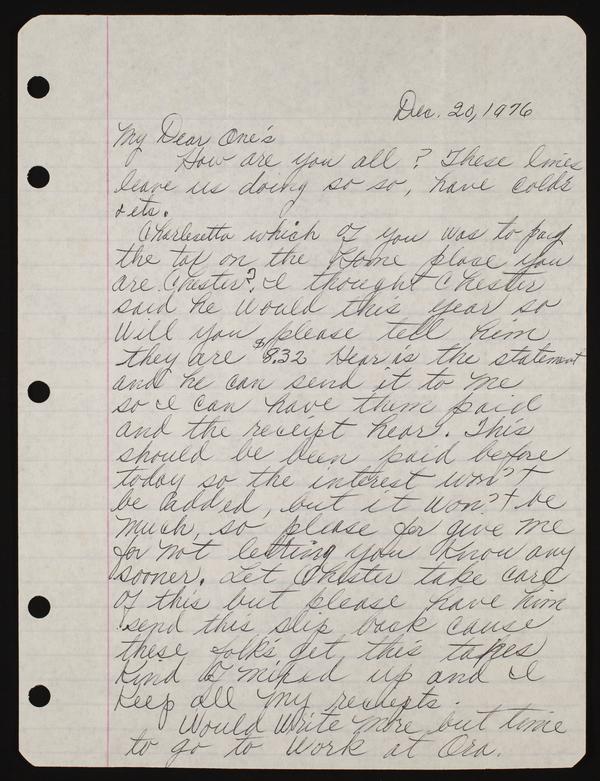 Dec. 20, 1976
My Dear One's
How are you all? These lines
leave us doing so so, have colds
& ets.
Charlesetta which of you was to pay
the tax on the Home place you
are Chester? I thought Chester
said he would this year so
will you please tell him
they are $8.32 Hear is the statement
and he can send it to me
so I can have them paid
and the receipt hear. This
should be been paid before
today so the interest won't
be added, but it won't be
much, so please for give me
for not letting you know any
sooner. Let Chester take care
of this but please have him
send this slip back cause
these folks get this taxes
kind of mixed up and I
keep all my receipts.
Would write more but time
to go to work at Ora.